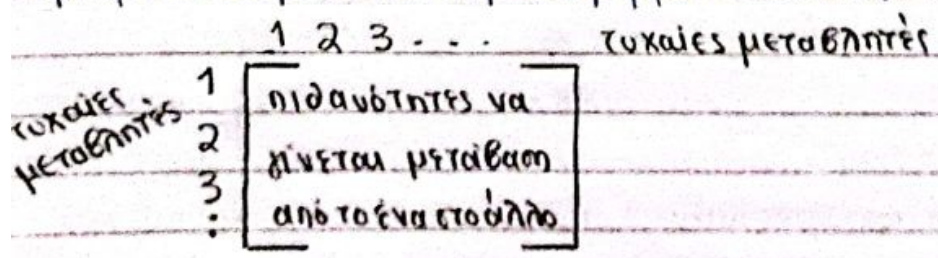 1 2 3 - - - τυχαίες μεταβλητές
τυχαίες
μεταβλητές
1 πιθανότητες να
2 γίνεται μετάβαση
3 από το ένα στο άλλο
: